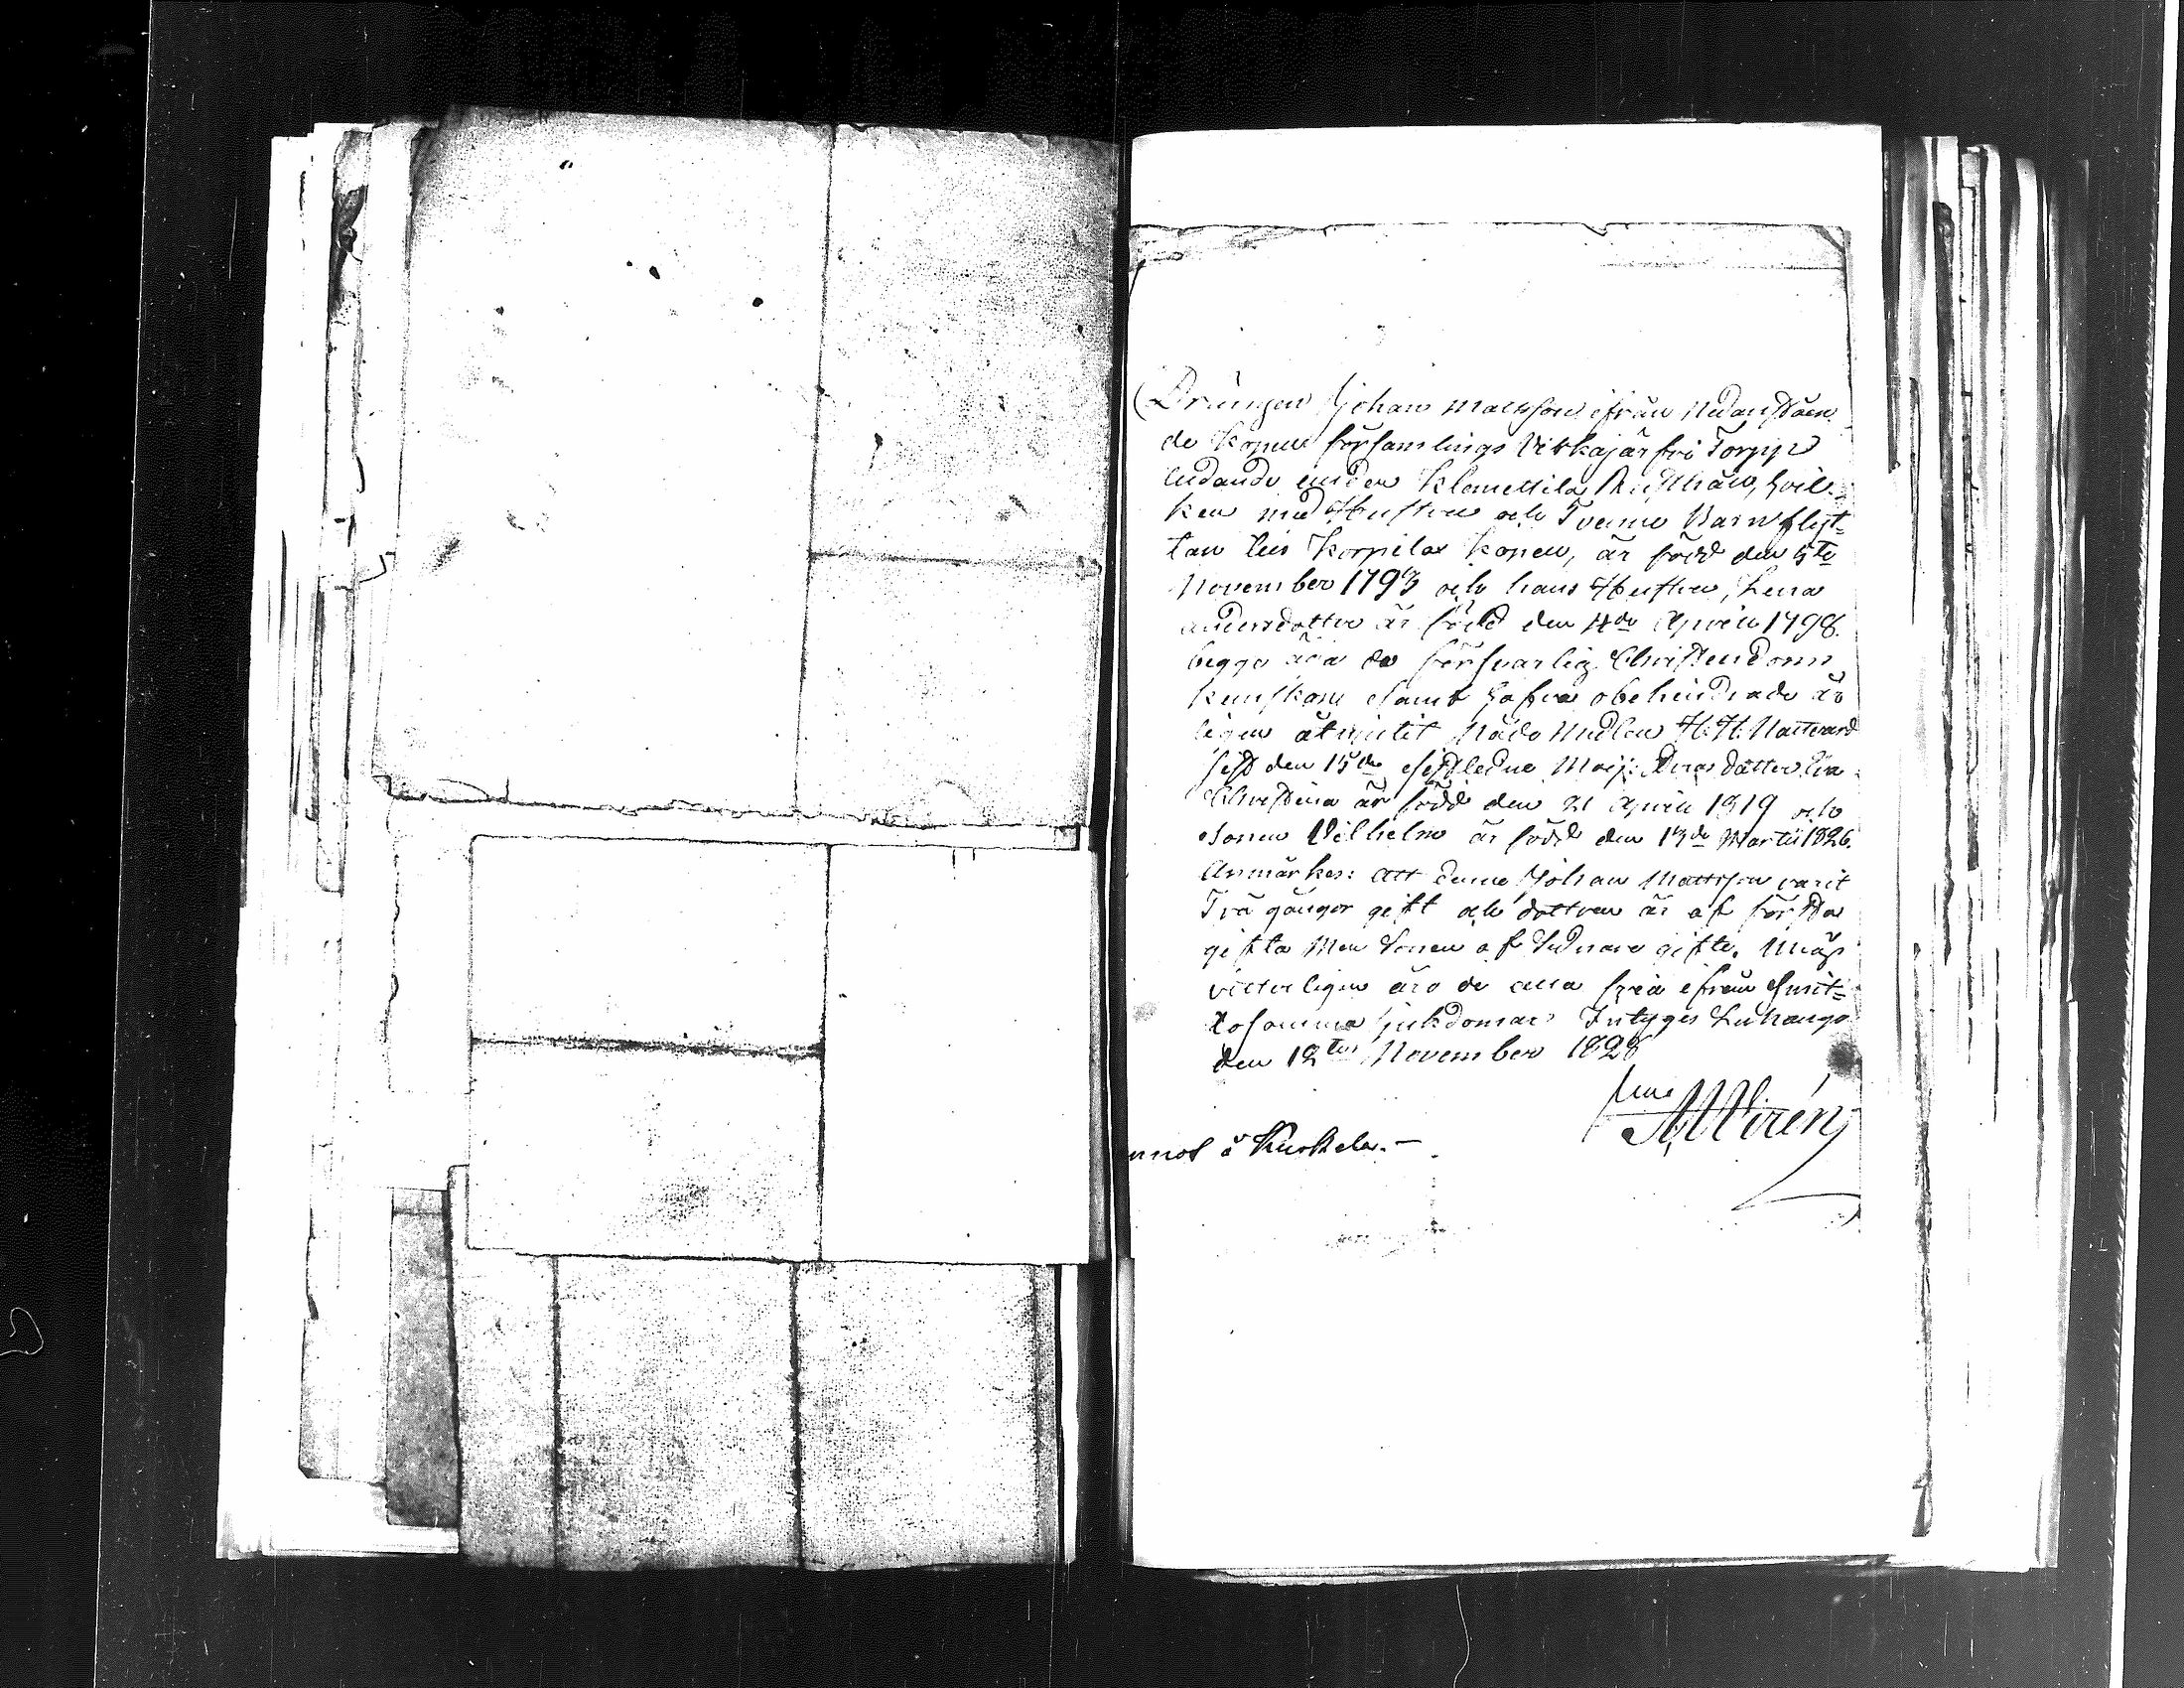 Drängen Johan Mattsson ifrån nedanståen
de Kapell församlings Vitkajärfvi Torpp
lydande under Klemettilä Rusthåll, hvil-
ken med Hustru och Tvenne Barn flyt-
tar till Korpilax Kapell, är född den 5te
November 1793 och hans Hustru, Lena
Andersdotter är född den 4de Aprill 1798.
begge äga de försvarlig Christendoms
kunskap samt hafva obehindrade år
ligen åtnjutit Nåde Medlen H. H. Nattvard
sist den 15de sistledne Maji: Deras dotter Eva
Christina är född den 21 Aprill 1819 och
Sonen Vilhelm är född den 13de Martii 1826.
Anmärkes: att denne Johan Mattsson varit
Två gångor gift och dottren är af första
gifta men Sonen af sednare gifte.
vitterligen äro de alla fria ifrån smit-
tosamma sjukdomar Intygas Luhango
den 12te November 1828
A Wirén
å Kuokola. —